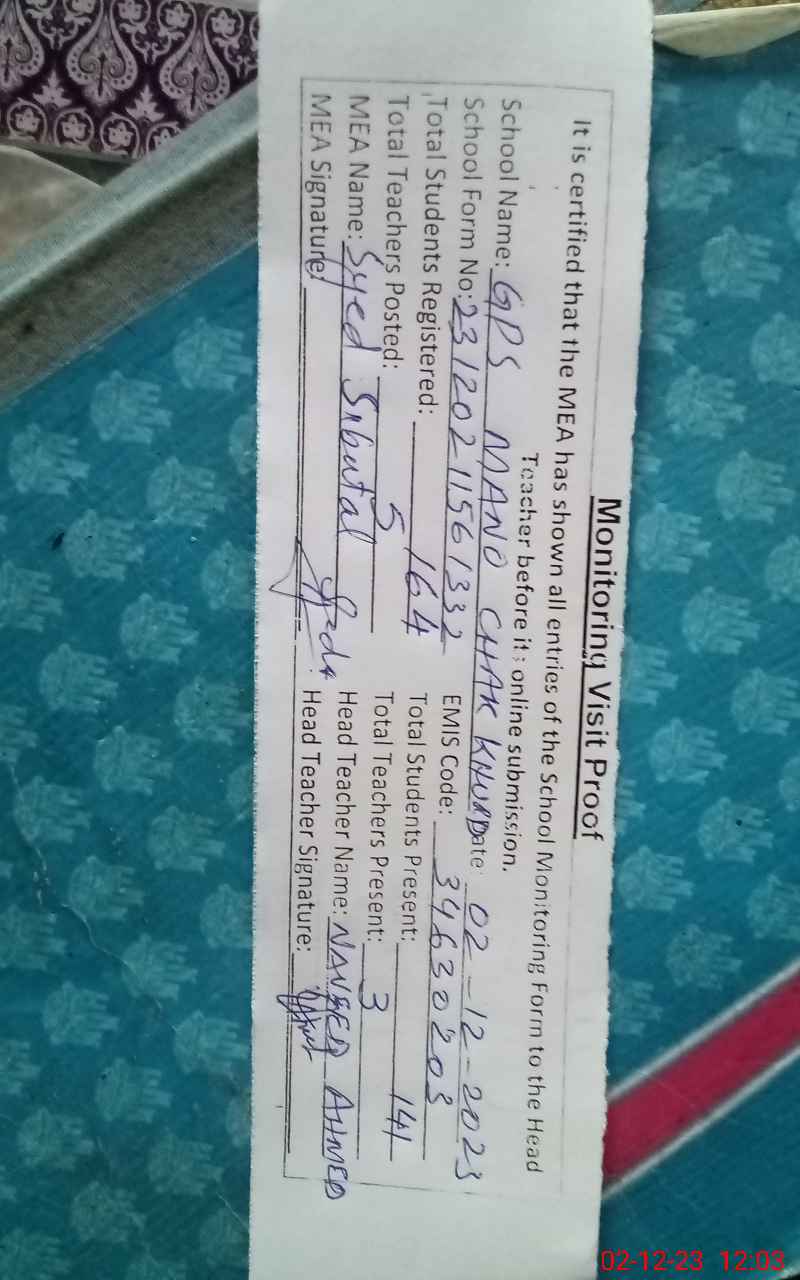 Monitoring Visit Proof
It is certified that the MEA has shown all entries of the School Monitoring Form to the Head
Teacher before its online submission.
School Name: GPS MANO CHAK KHURD Date: 02-12-2023
School Form No: 23120211561332 EMIS Code: 34630203
Total Students Registered: 164 Total Students Present: 141
Total Teachers Posted: 5 Total Teachers Present: 3
MEA Name: Syed Head Teacher Name: NAVEED AHMED
MEA Signature: Head Teacher Signature:
02-12-23 12:03